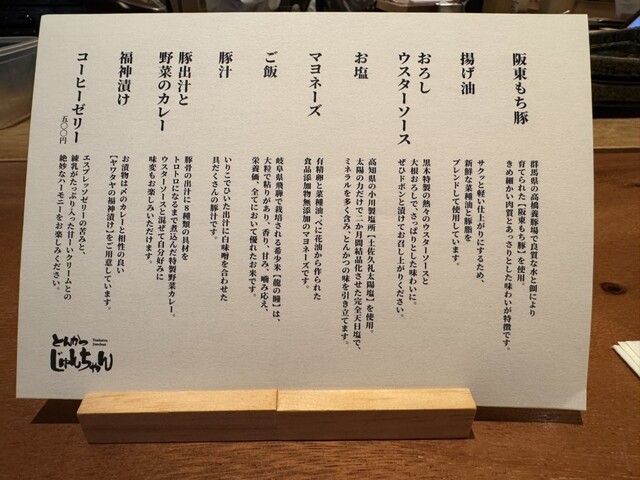 阪東もち豚
群馬県の高橋養豚場で良質な水と餌により
育てられた【阪東もち豚】を使用。
きめ細かい肉質とあっさりとした味わいが特徴です。
揚げ油
サクッと軽い仕上がりにするため、
新鮮な菜種油と豚脂を
ブレンドして使用しています。
おろし
ウスターソース
黒木特製の熱々のウスターソースと
大根おろしで、さっぱりとした味わいに。
ぜひドボンと漬けてお召し上がりください。
お塩
高知県の小川製塩所【土佐久礼太陽塩】を使用。
太陽の力だけで二か月間結晶化させた完全天日塩で、
ミネラルを多く含み、とんかつの味を引き立てます。
マヨネーズ
有精卵と菜種油、べに花油から作られた
食品添加物無添加のマヨネーズです。
ご飯
岐阜県飛騨で栽培される希少米【龍の瞳】は、
大粒で粘りがあり、香り、甘み、噛み応え、
栄養価、全てにおいて優れたお米です。
豚汁
いりこでひいた出汁に白味噌を合わせた
具だくさんの豚汁です。
豚出汁と
野菜のカレー
豚骨の出汁に8種類の具材を
トロトロになるまで煮込んだ特製野菜カレー。
ウスターソースと混ぜて自分好みに
味変もお楽しみいただけます。
福神漬け
お漬物は〆のカレーと相性の良い
【ヤワタヤの福神漬け】をご用意しています。
コーヒーゼリー 五〇〇円
エスプレッソゼリーの苦みと、
練乳がたっぷり入った甘ーいクリームとの
絶妙なハーモニーをお楽しみください。
とんかつ
じゅんちゃん
Tonkatsu
Junchan